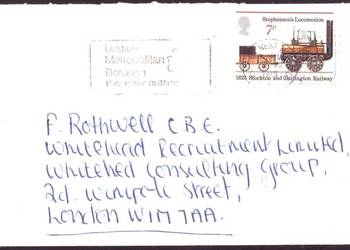 Stephenson's Locomotion
7p
Dudley
Metropolitan
Borough
the new authority
1825 Stockton and Darlington Railway
F. Rothwell C B E.
Whitehead Recruitment Limited,
Whitehead Consulting Group,
21, Wimpole Street,
London W1M 7AA.